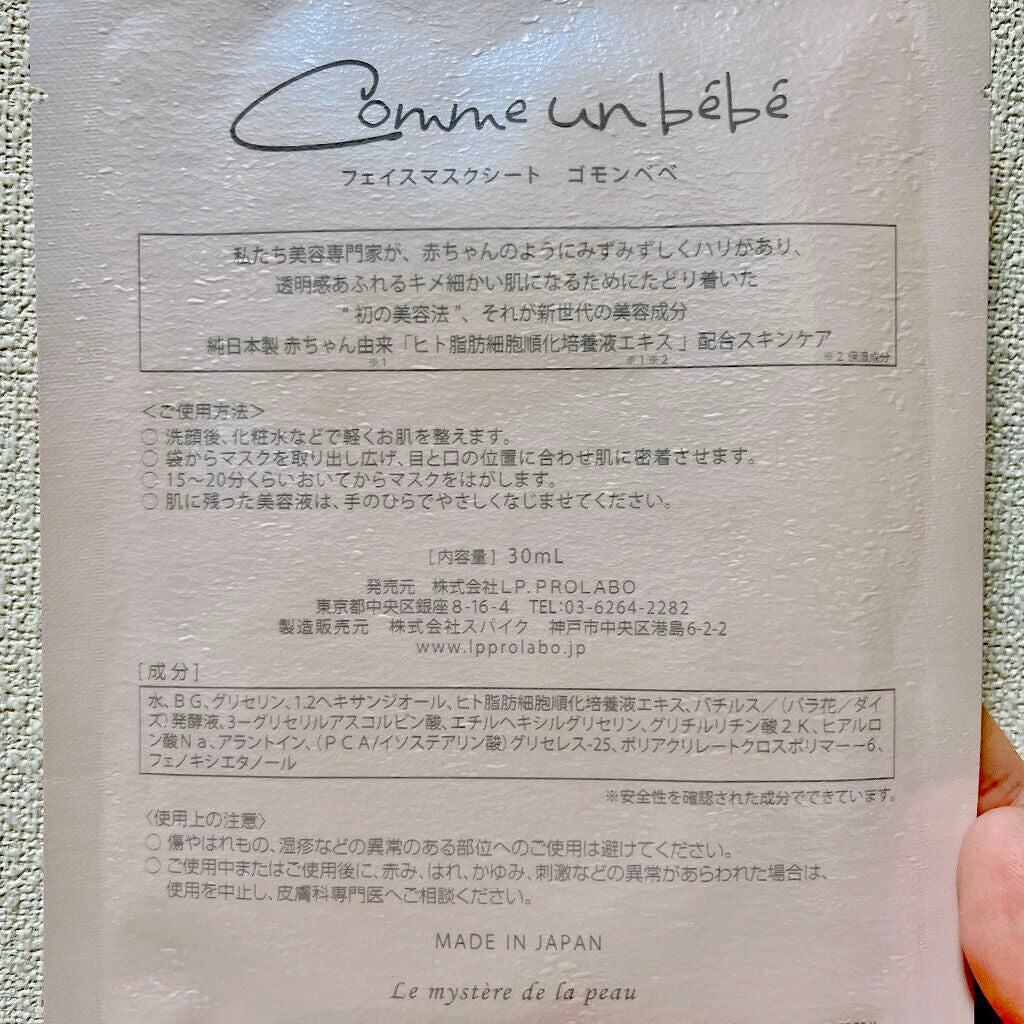 Comme un bébé
フェイスマスクシート ゴモンベベ
私たち美容専門家が、赤ちゃんのようにみずみずしくハリがあり、
透明感あふれるキメ細かい肌になるためにたどり着いた
“初の美容法”、それが新世代の美容成分
純日本製 赤ちゃん由来「ヒト脂肪細胞順化培養液エキス」配合スキンケア
※1 ※1※2 ※2 保湿成分
＜ご使用方法＞
○ 洗顔後、化粧水などで軽くお肌を整えます。
○ 袋からマスクを取り出し広げ、目と口の位置に合わせ肌に密着させます。
○ 15～20分くらいおいてからマスクをはがします。
○ 肌に残った美容液は、手のひらでやさしくなじませてください。
[内容量] 30mL
発売元 株式会社LP. PROLABO
東京都中央区銀座8-16-4 TEL:03-6264-2282
製造販売元 株式会社スパイク 神戸市中央区港島6-2-2
www.lpprolabo.jp
[成分]
水、ＢＧ、グリセリン、1.2ヘキサンジオール、ヒト脂肪細胞順化培養液エキス、バチルス／（バラ花／ダイ
ズ）発酵液、3ーグリセリルアスコルビン酸、エチルヘキシルグリセリン、グリチルリチン酸２Ｋ、ヒアルロ
ン酸Ｎａ、アラントイン、（ＰＣＡ/イソステアリン酸）グリセレス-25、ポリアクリレートクロスポリマーー6、
フェノキシエタノール
※安全性を確認された成分でできています。
〈使用上の注意〉
○ 傷やはれもの、湿疹などの異常のある部位へのご使用は避けてください。
○ ご使用中またはご使用後に、赤み、はれ、かゆみ、刺激などの異常があらわれた場合は、
使用を中止し、皮膚科専門医へご相談ください。
MADE IN JAPAN
Le mystère de la peau